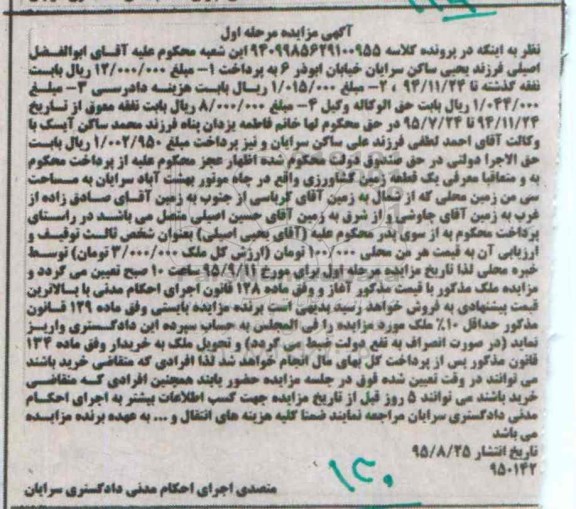 آگهی مزایده مرحله اول
نظر به اینکه در پرونده کلاسه ۹۴۰۹۹۸۵۶۲۹۱۰۰۹۵۵ این شعبه محکوم علیه آقای ابوالفضل
اصیلی فرزند یحیی ساکن سرایان خیابان ابوذر ۶ به پرداخت ۱- مبلغ ۱۳/۰۰۰/۰۰۰ ریال بابت
نفقه گذشته تا ۹۴/۱۱/۲۴ ۲- مبلغ ۱/۰۱۵/۰۰۰ ریال بابت هزینه دادرسی ۳- مبلغ
۱/۰۴۴/۰۰۰ ریال بابت حق الوکاله وکیل ۴- مبلغ ۸/۰۰۰/۰۰۰ ریال بابت نفقه معوق از تاریخ
۹۴/۱۱/۲۴ تا ۹۵/۷/۲۴ در حق محکوم لها خانم فاطمه یزدان پناه فرزند محمد ساکن آیسک با
وکالت آقای احمد لطفی فرزند علی ساکن سرایان و نیز پرداخت مبلغ ۱/۰۰۲/۹۵۰ ریال بابت
حق الاجرا دولتی در حق صندوق دولت محکوم شده اظهار عجز محکوم علیه از پرداخت محکوم
به و متعاقبا معرفی یک قطعه زمین کشاورزی واقع در چاه موتور بهشت آباد سرایان به مساحت
سی من زمین محلی که از شمال به زمین آقای کرباسی از جنوب به زمین آقای صادق زاده از
غرب به زمین آقای چاوشی و از شرق به زمین آقای حسین اصیلی متصل می باشد در راستای
پرداخت محکوم به از سوی پدر محکوم علیه (آقای یحیی اصیلی) بعنوان شخص ثالث توقیف و
ارزیابی آن به قیمت هر من محلی ۱۰۰/۰۰۰ تومان (ارزش کل ملک ۳/۰۰۰/۰۰۰ تومان) توسط
خبره محلی لذا تاریخ مزایده مرحله اول برای مورخ ۹۵/۹/۱۱ ساعت ۱۰ صبح تعیین می گردد و
مزایده ملک مذکور با قیمت مذکور آغاز و وفق ماده ۱۲۸ قانون اجرای احکام مدنی با بالاترین
قیمت پیشنهادی به فروش خواهد رسید بدیهی است برنده مزایده بایستی وفق ماده ۱۲۹ قانون
مذکور حداقل ۱۰٪ ملک مورد مزایده را فی المجلس به حساب سپرده این دادگستری واریز
نماید (در صورت انصراف به نفع دولت ضبط می گردد) و تحویل ملک به خریدار وفق ماده ۱۳۴
قانون مذکور پس از پرداخت کل بهای مال انجام خواهد شد لذا افرادی که متقاضی خرید باشند
می توانند در وقت تعیین شده فوق در جلسه مزایده حضور یابند همچنین افرادی که متقاضی
خرید باشند می توانند ۵ روز قبل از تاریخ مزایده جهت کسب اطلاعات بیشتر به اجرای احکام
مدنی دادگستری سرایان مراجعه نمایند ضمنا کلیه هزینه های انتقال و ... به عهده برنده مزایده
می باشد
تاریخ انتشار ۹۵/۸/۲۵
۹۵۰۱۴۲
متصدی اجرای احکام مدنی دادگستری سرایان